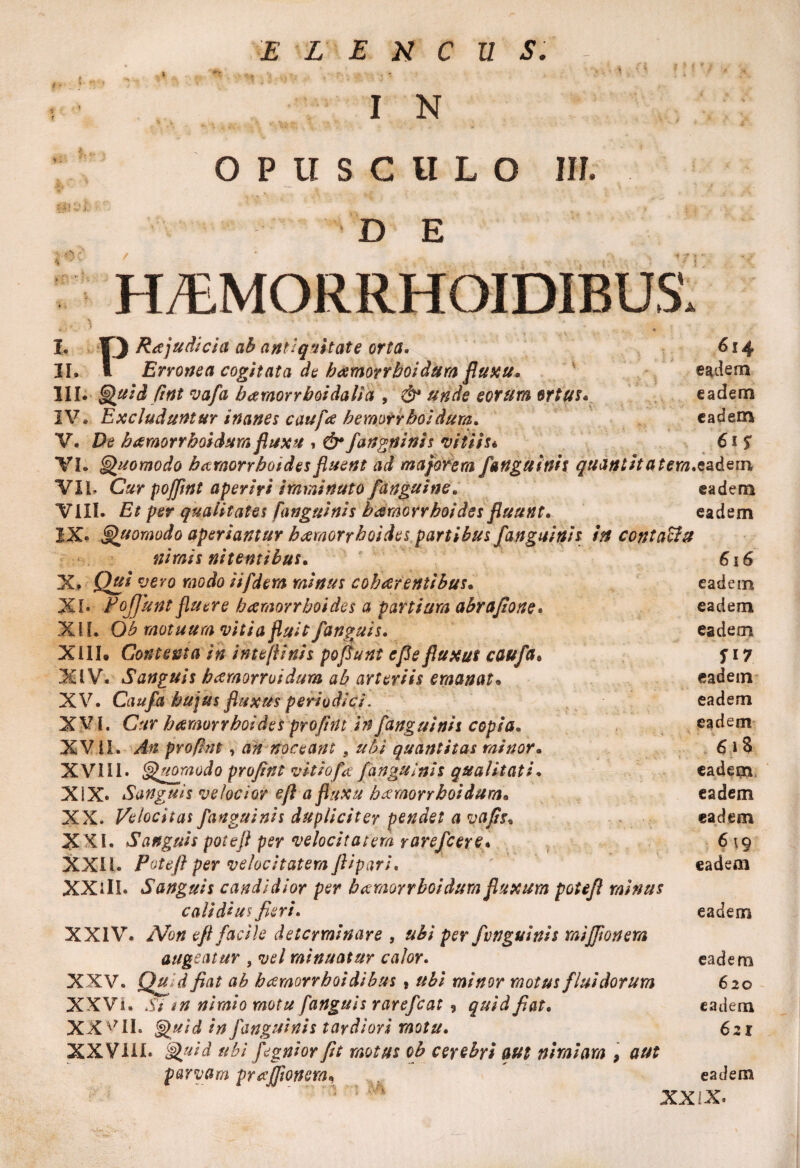 ELENCUS.
IN
OPUSCULO III.
DE
HÆMORRHOIDIBUS.
I. PRæjudicia ab antiquitate orta. 614
II. Erronea cogitata de hæmorrhoidum fluxu. eadem
III. Quid ſint vaſa hæmorrhoidalia, & unde eorum ortus. eadem
IV. Excluduntur inanes cauſæ hemorrhoidum. eadem
V. De hæmorrhoidum fluxu, & ſanguinis vitiis. 615
VI. Quomodo hæmorrhoides fluent ad majorem ſanguinis quantitatem. eadem
VII. Cur poſſint aperiri imminuto ſanguine. eadem
VIII. Et per qualitates ſanguinis hæmorrhoides fluunt. eadem
IX. Quomodo aperiantur hæmorrhoides partibus ſanguinis in contacta
nimis nitentibus. 616
X. Qui vero modo iiſdem minus cohærentibus. eadem
XI. Poſſunt fluere hæmorrhoides a partium abraſione. eadem
XII. Ob motuum vitia fluit ſanguis. eadem
XIII. Contenta in inteſtinis poſſunt eſſe fluxus cauſa. 517
XIV. Sanguis hæmorroidum ab arteriis emanat. eadem
XV. Cauſa hujus fluxus periodici. eadem
XVI. Cur hæmorrhoides proſint in ſanguinis copia. eadem
XVII. An proſint, an noceant, ubi quantitas minor. 618
XVIII. Quomodo proſint vitioſæ ſanguinis qualitati. eadem
XIX. Sanguis velocior eſt a fluxu hæmorrhoidum. eadem
XX. Velocitas ſanguinis dupliciter pendet a vaſis. eadem
XXI. Sanguis poteſt per velocitatem rareſcere. 619
XXII. Poteſt per velocitatem ſtipari. eadem
XXIII. Sanguis candidior per hæmorrhoidum fluxum poteſt minus
calidius fieri. eadem
XXIV. Non eſt facile determinare, ubi per ſvnguinis miſſionem
augeatur, vel minuatur calor. eadem
XXV. Quid fiat ab hæmorrhoidibus, ubi minor motus fluidorum 620
XXVI. Si in nimio motu ſanguis rarefcat, quid fiat. eadem
XXVII. Quid in ſanguinis tardiori motu. 621
XXVIII. Quid ubi ſegnior fit motus ob cerebri aut nimiam, aut
parvam præſſionem. eadem
XXIX.